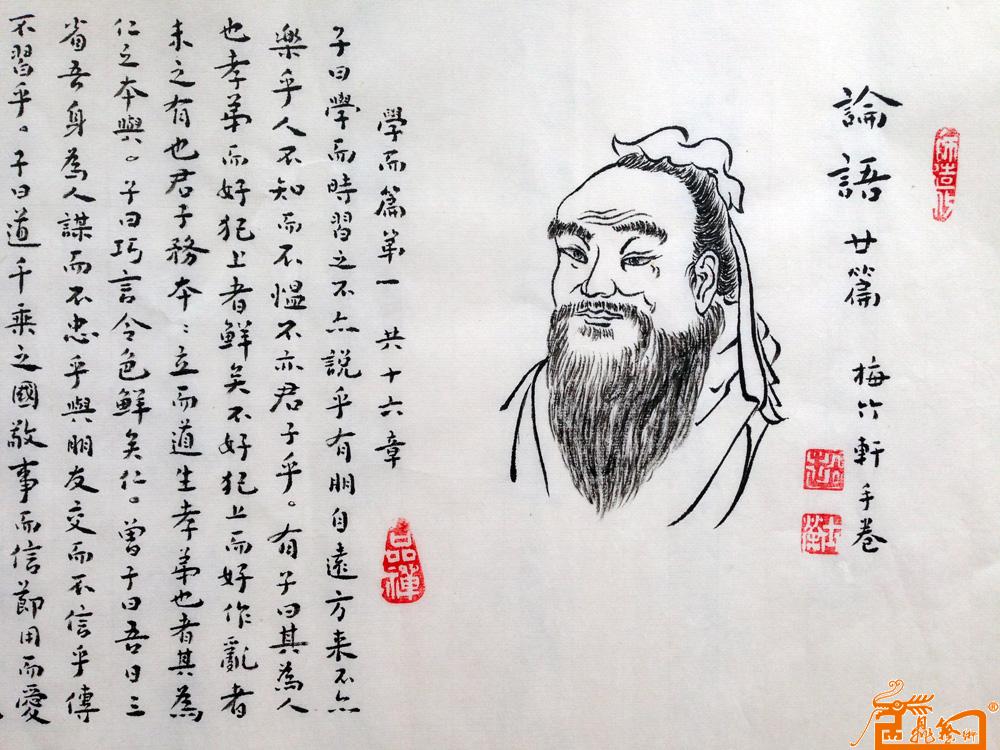 師造化
論語廿篇 梅竹軒手卷
學而篇第一 共十六章
品禪
子曰學而時習之不亦說乎有朋自遠方来不亦
樂乎人不知而不愠不亦君子乎。有子曰其為人
也孝弟而好犯上者鮮矣不好犯上而好作亂者
未之有也君子務本〻立而道生孝弟也者其為
仁之本與。子曰巧言令色鮮矣仁。曾子曰吾日三
省吾身為人謀而不忠乎與朋友交而不信乎傳
不習乎。子曰道千乘之國敬事而信節用而愛